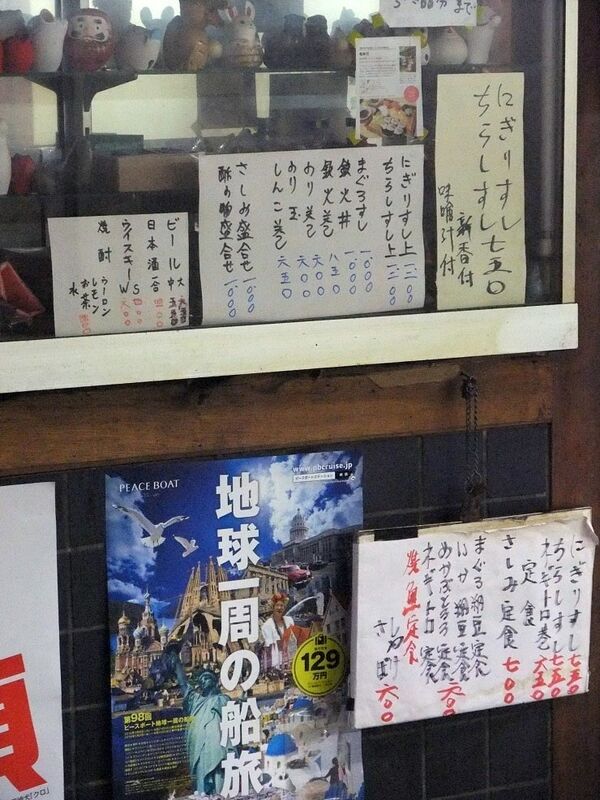 にぎりすし七五〇
ちらしすし
新香付
味噌汁付
にぎりすし上一二〇〇
ちらしすし上一二〇〇
まぐろすし一〇〇〇
鉄火丼一〇〇〇
鉄火巻八五〇
のり巻六〇〇
のり玉六〇〇
しんこ巻六五〇
さしみ盛合せ
酢の物盛合せ一〇〇〇
ビール大
中五五〇
日本酒一合四〇〇
ウイスキーS
W六〇〇
焼酎
ウーロン
レモン
お茶
水
PEACE BOAT
www.pbcruise.jp
地球一周の船旅
129
万円
第98回
ピースボート地球一周の船旅
にぎりすし七五〇
ちらしすし七五〇
ネギトロ巻六五〇
定食
さしみ定食七〇〇
まぐろ納豆定食
いか納豆定食
めかぶとろろ定食六〇〇
ネギトロ定食
焼魚定食
さんま
さば
しゃけ六〇〇